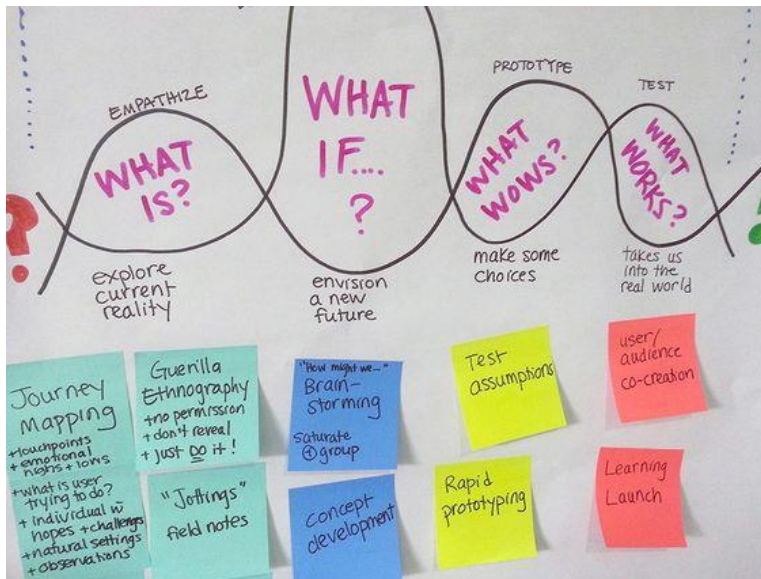 EMPATHIZE
WHAT
IS?
explore
current
reality
WHAT
IF....
?
envision
a new
future
PROTOTYPE
WHAT
WOWS?
make some
choices
TEST
WHAT
WORKS?
takes us
into the
real world
?
Journey
Mapping
+touchpoints
+ emotional
highs + lows
+what is user
trying to do?
+ individual w
hopes + challenges
+natural settings
+ observations
Guerilla
Ethnography
+no permission
+ don't reveal
+ just DO it!
"Jottings"
field notes
"How might we..."
Brain-
storming
saturate
+ group
concept
development
Test
assumptions
Rapid
prototyping
user/
audience
co-creation
Learning
Launch